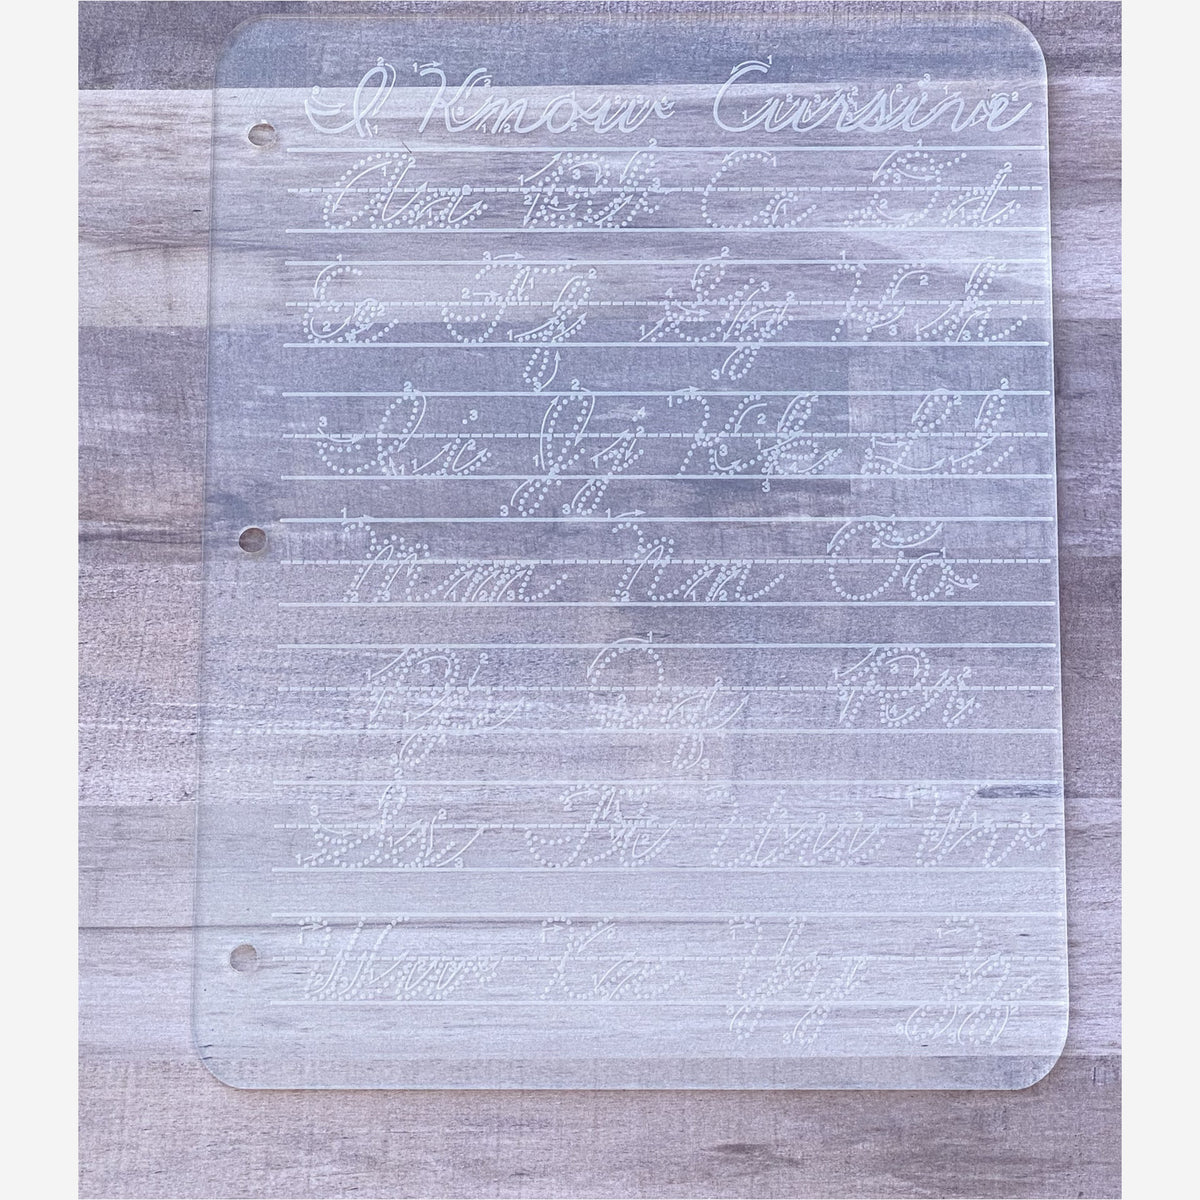 I Know Cursive
Aa Bb Cc Dd
Ee Ff Gg Hh
Ii Jj Kk Ll
Mm Nn Oo
Pp Qq Rr
Ss Tt Uu Vv
Ww Xx Yy Zz